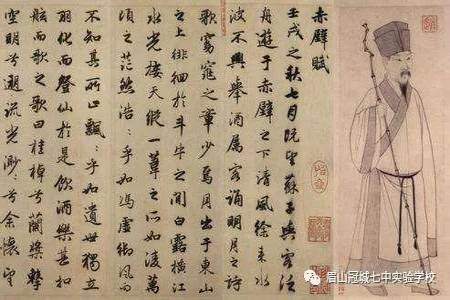 赤壁賦
壬戌之秋七月既望蘇子與客泛
舟遊于赤壁之下清風徐來水
波不興舉酒属客誦明月之詩
歌窈窕之章少焉月出于東山
之上徘徊於斗牛之間白露橫江
水光接天縱一葦之所如凌萬
頃之茫然浩〻乎如馮虛御風而
不知其所止飄〻乎如遺世獨立
羽化而登仙於是飲酒樂甚扣
舷而歌之歌曰桂棹兮蘭槳擊
空明兮遡流光渺〻兮余懷望
眉山冠城七中实验学校